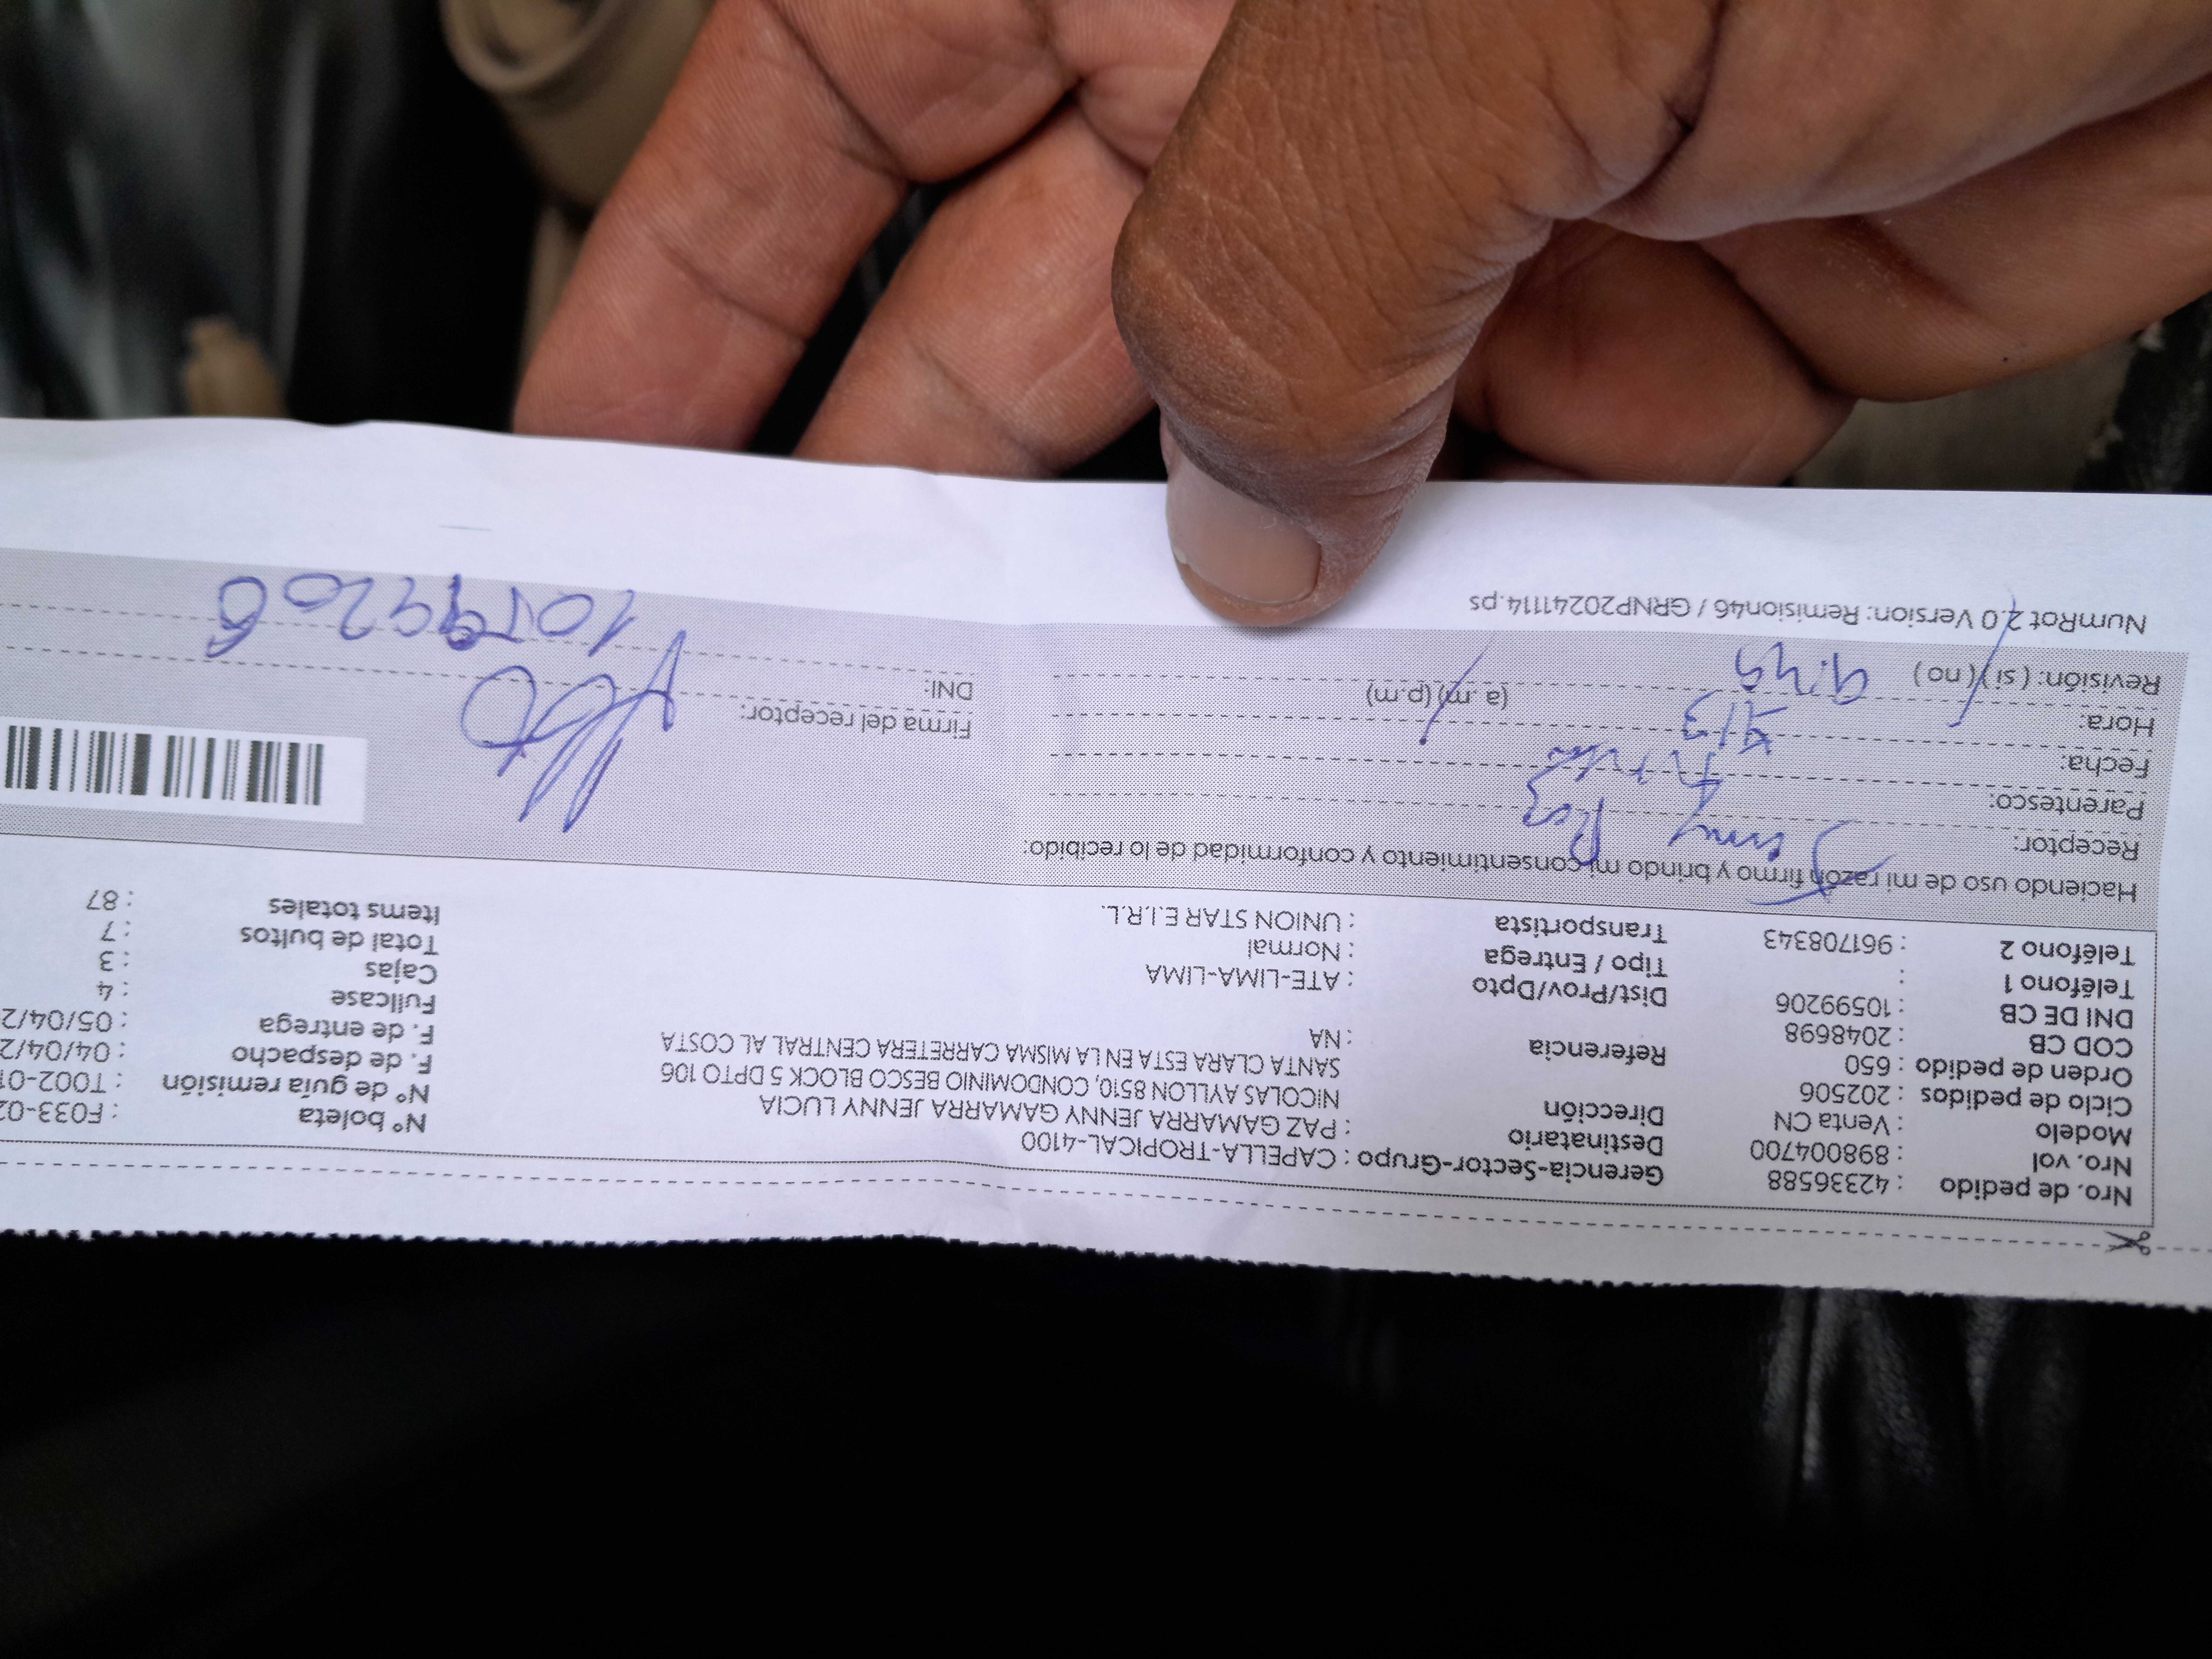 Nro. de pedido : 42336588 Gerencia-Sector-Grupo : CAPELLA-TROPICAL-4100
Nro. vol : 898004700 Destinatario : PAZ GAMARRA JENNY GAMARRA JENNY LUCIA Nº boleta : F033-02
Modelo : Venta CN Dirección NICOLAS AYLLON 8510, CONDOMINIO BESCO BLOCK 5 DPTO 106 Nº de guía remisión : T002-01
Ciclo de pedidos : 202506 SANTA CLARA ESTA EN LA MISMA CARRETERA CENTRAL AL COSTA F. de despacho : 04/04/2
Orden de pedido : 650 Referencia : NA F. de entrega : 05/04/2
COD CB : 2048698 Fullcase : 4
DNI DE CB : 10599206 Dist/Prov/Dpto : ATE-LIMA-LIMA Cajas : 3
Teléfono 1 : Tipo / Entrega : Normal Total de bultos : 7
Teléfono 2 : 961708343 Transportista : UNION STAR E.I.R.L. Items totales : 87
Haciendo uso de mi razón firmo y brindo mi consentimiento y conformidad de lo recibido:
Receptor: Jenny Paz
Parentesco:
Fecha:
Hora: 9:49 (a.m) (p.m) Firma del receptor:
Revisión: ( si ) ( no ) DNI: 10599206
NumRot 2.0 Version: Remision46 / GRNP20241114.ps